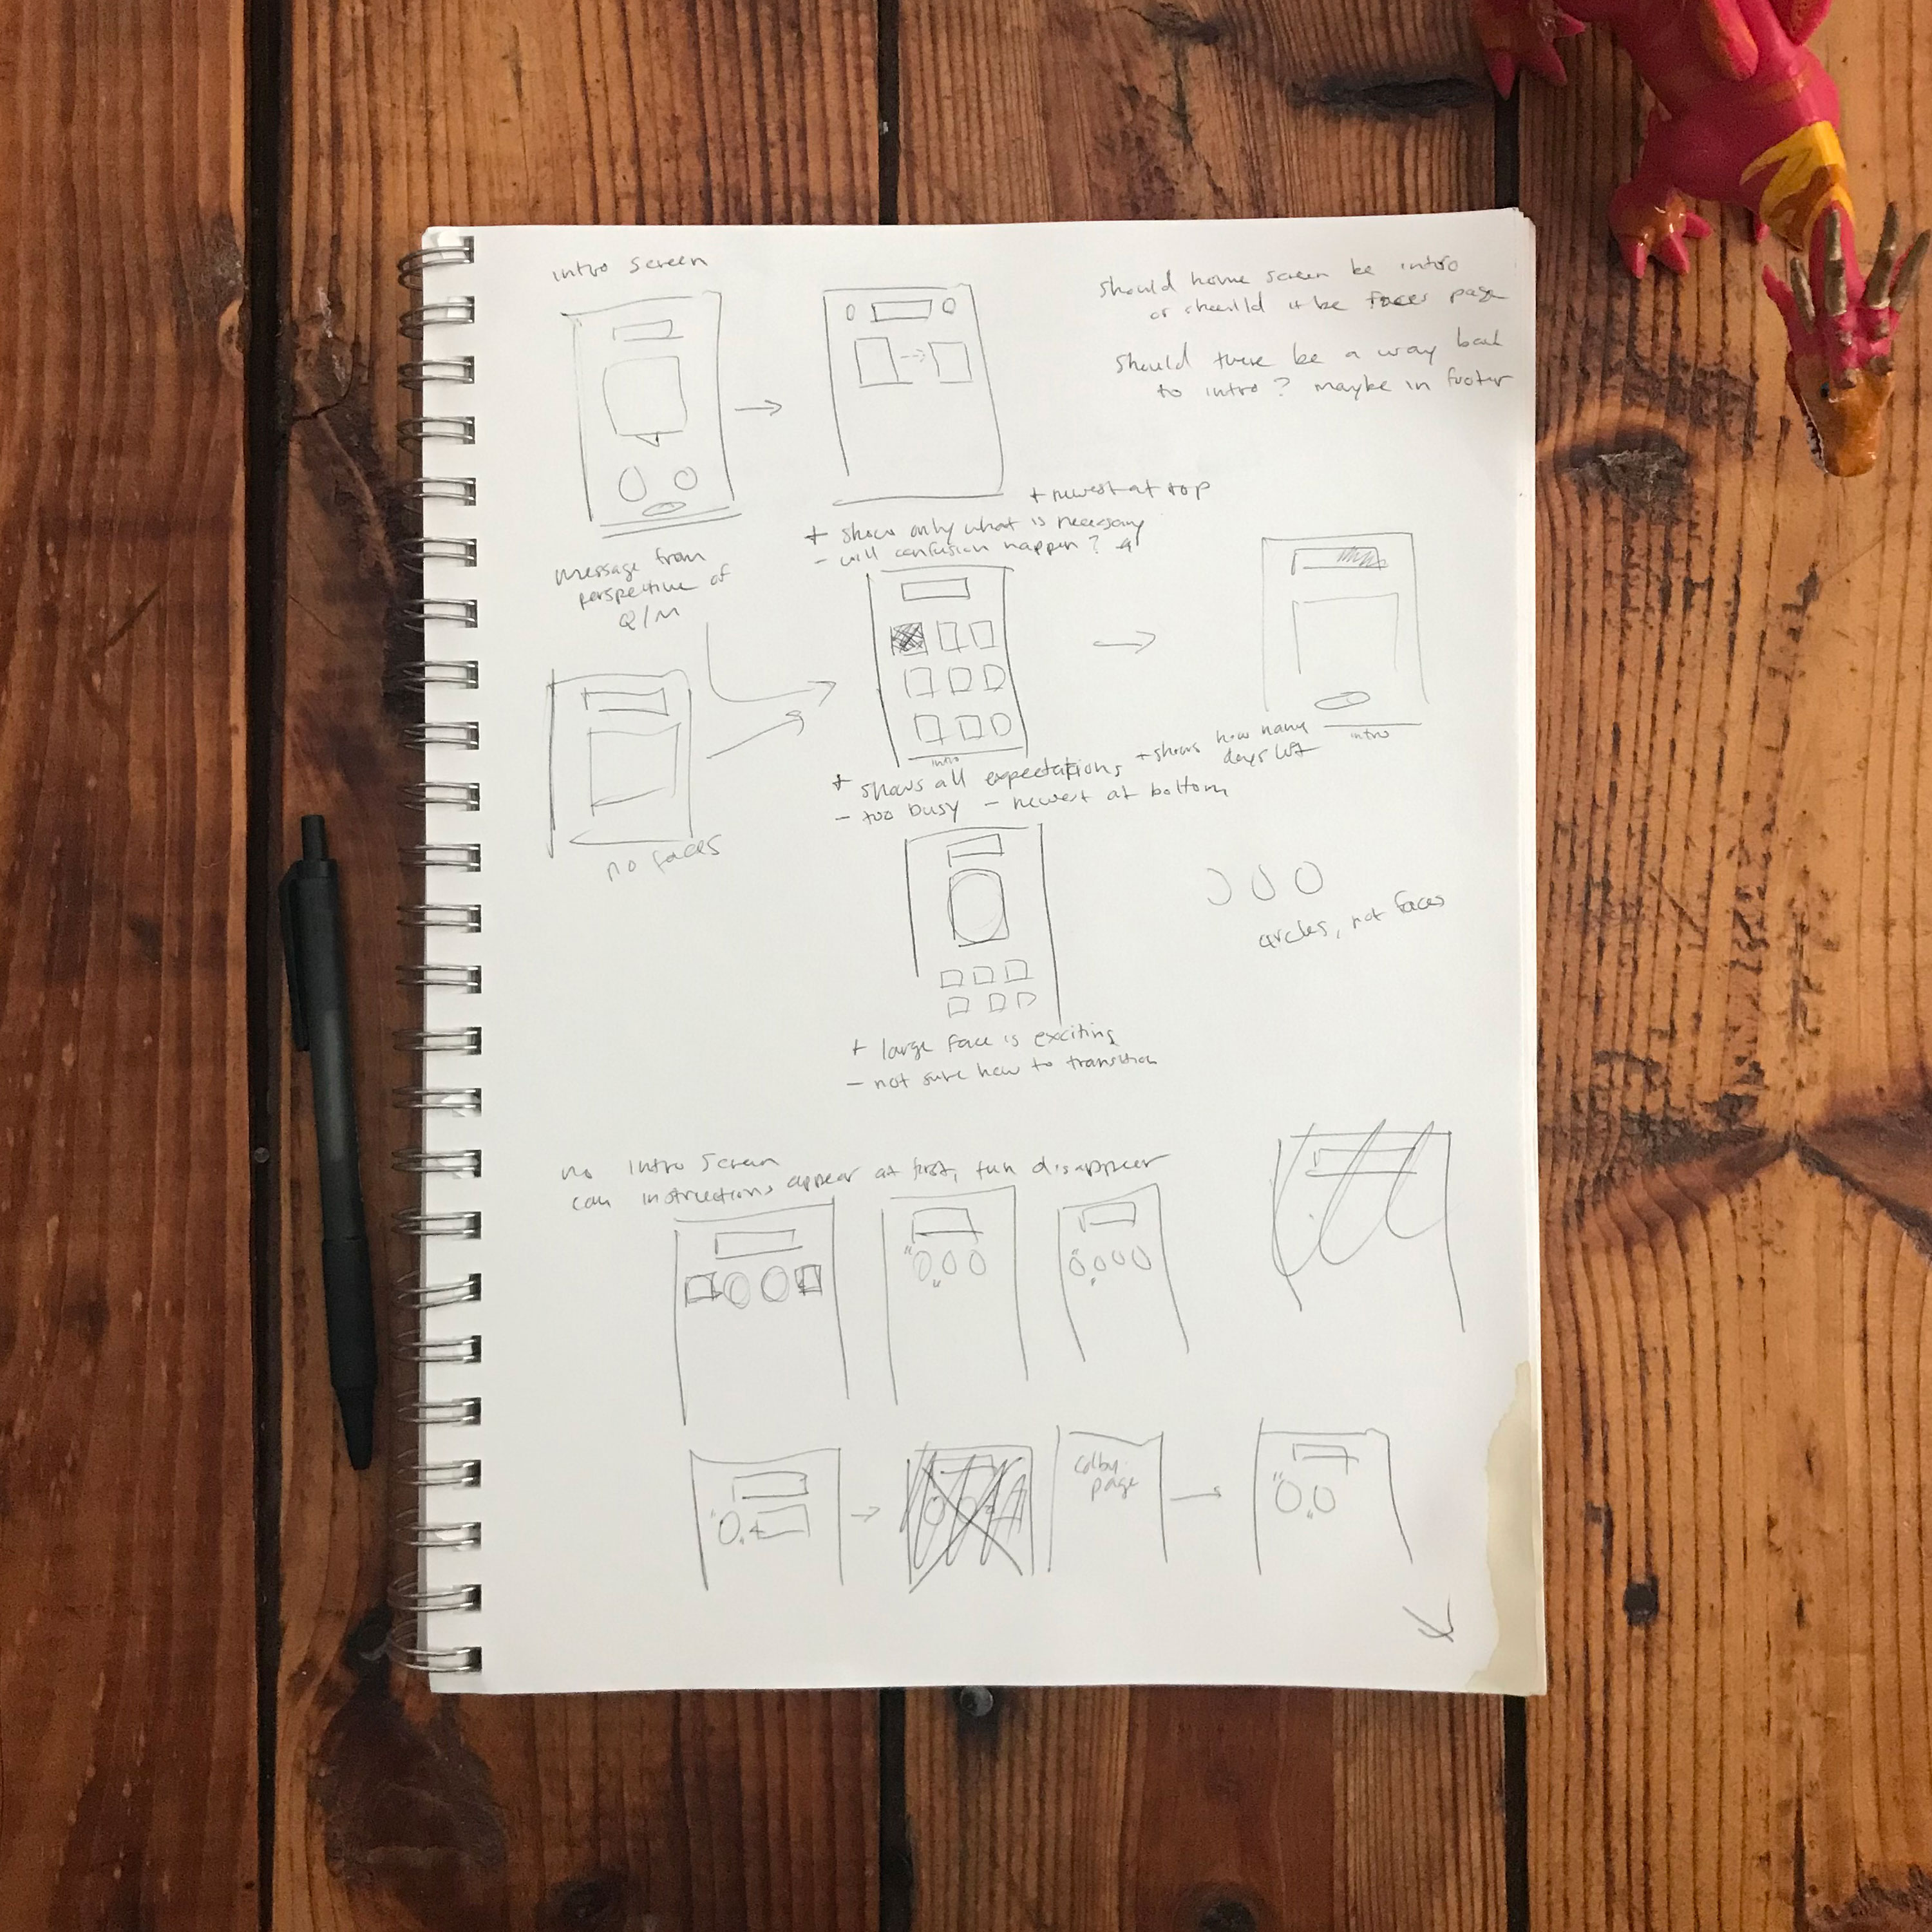 intro screen
should home screen be intro
or should it be faces page
should there be a way back
to intro? maybe in footer
+ newest at top
+ shows only what is necessary
- will confusion happen?
message from
perspective of
Q/M
intro
intro
+ shows all expectations + shows how many
days left
- too busy - newest at bottom
no faces
circles, not faces
+ large face is exciting
- not sure how to transition
no intro screen
can instructions appear at first, then disappear
colby
page